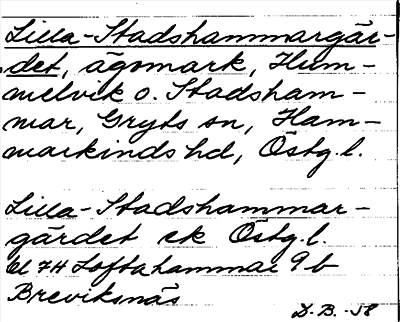 Lilla-Stadshammargär-
det, ägomark, Hum-
melvik o. Stadsham-
mar, Gryts sn, Ham-
markinds hd, Östg. l.
Lilla-Stadshammar-
gärdet ek Östg. l.
bl 74 Loftahammar 9 b
Breviksnäs
D. B. -58